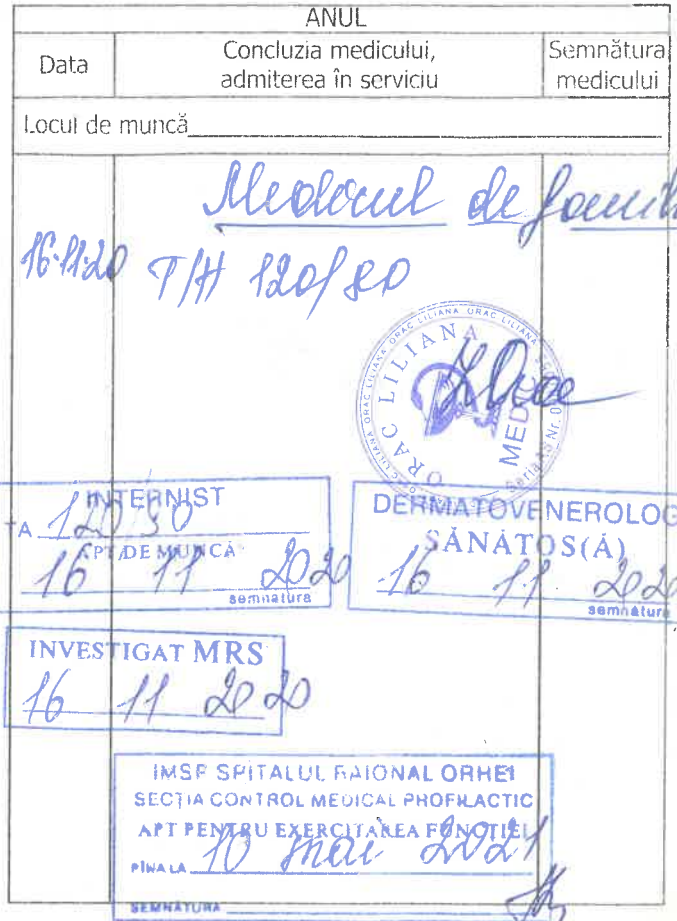 ANUL
Data
Concluzia medicului,
admiterea în serviciu
Semnătura
medicului
Locul de muncă
Medicul de famil
16.11.20 T/A 120/80
ORAC LILIANA
MED
INTERNIST
TA 120/80
APT DE MUNCĂ
16 11 2020
semnatura
DERMATOVENEROLOG
SĂNĂTOS(Ă)
16 11 202
semnatura
INVESTIGAT MRS
16 11 2020
IMSP SPITALUL RAIONAL ORHEI
SECȚIA CONTROL MEDICAL PROFILACTIC
APT PENTRU EXERCITAREA FUNCȚIEI
PÎNA LA 10 mai 2021
SEMNATURA